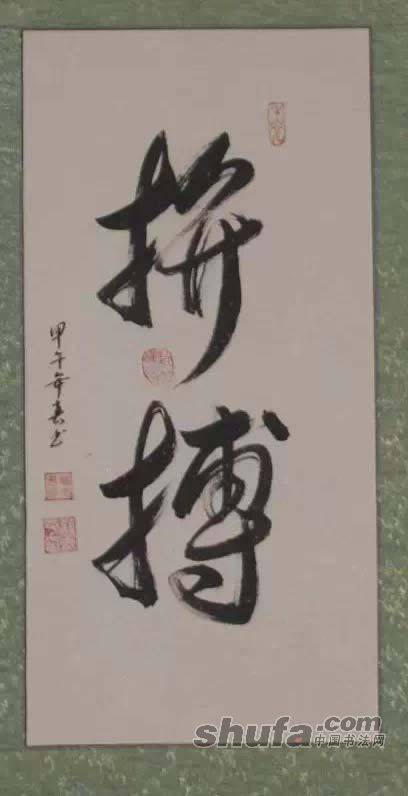 拼搏
甲午年春书
shufa.com
中国书法网